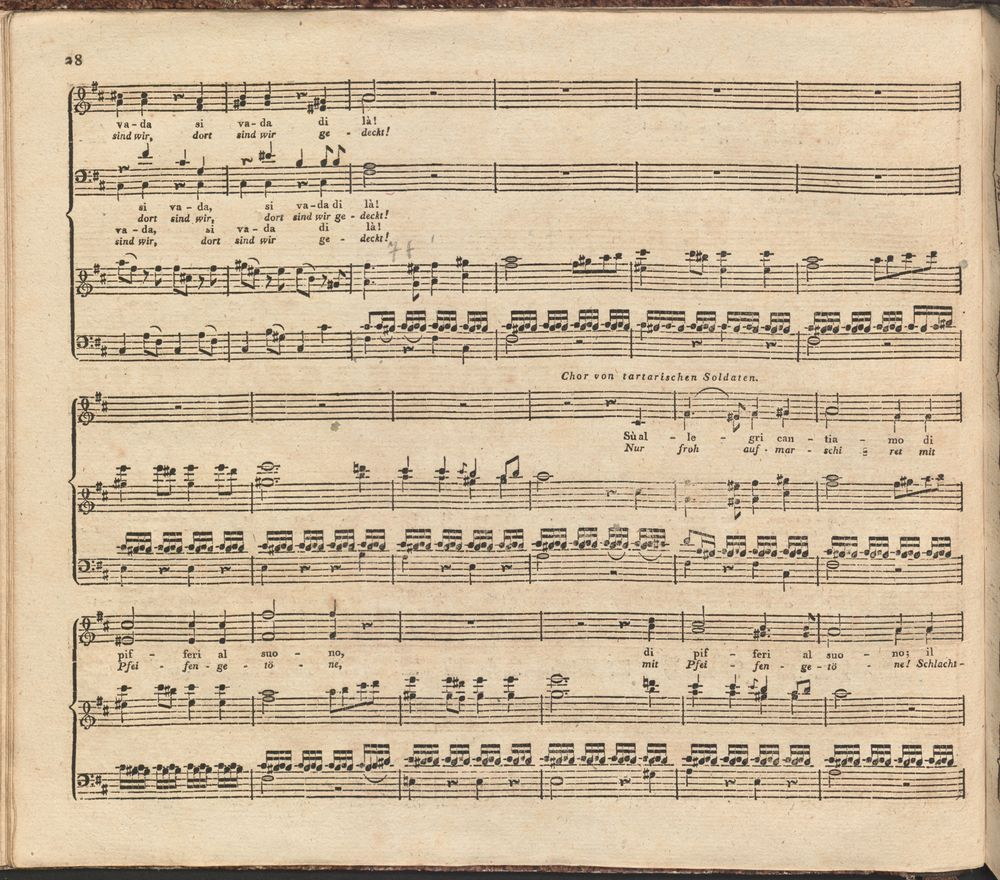 28
va-da si va-da di là!
sind wir, dort sind wir ge - deckt!
si va - da, si va-da di là!
dort sind wir, dort sind wir ge - deckt!
va - da, si va - da di là!
sind wir, dort sind wir ge - deckt!
Chor von tartarischen Soldaten.
Sù al - le - gri can - tia - mo di
Nur froh auf - mar - schi - ret mit
pif - feri al suo - no, di pif - feri al suo - no; il
Pfei - fen - ge - tö - ne, mit Pfei - fen - ge - tö - ne! Schlacht-